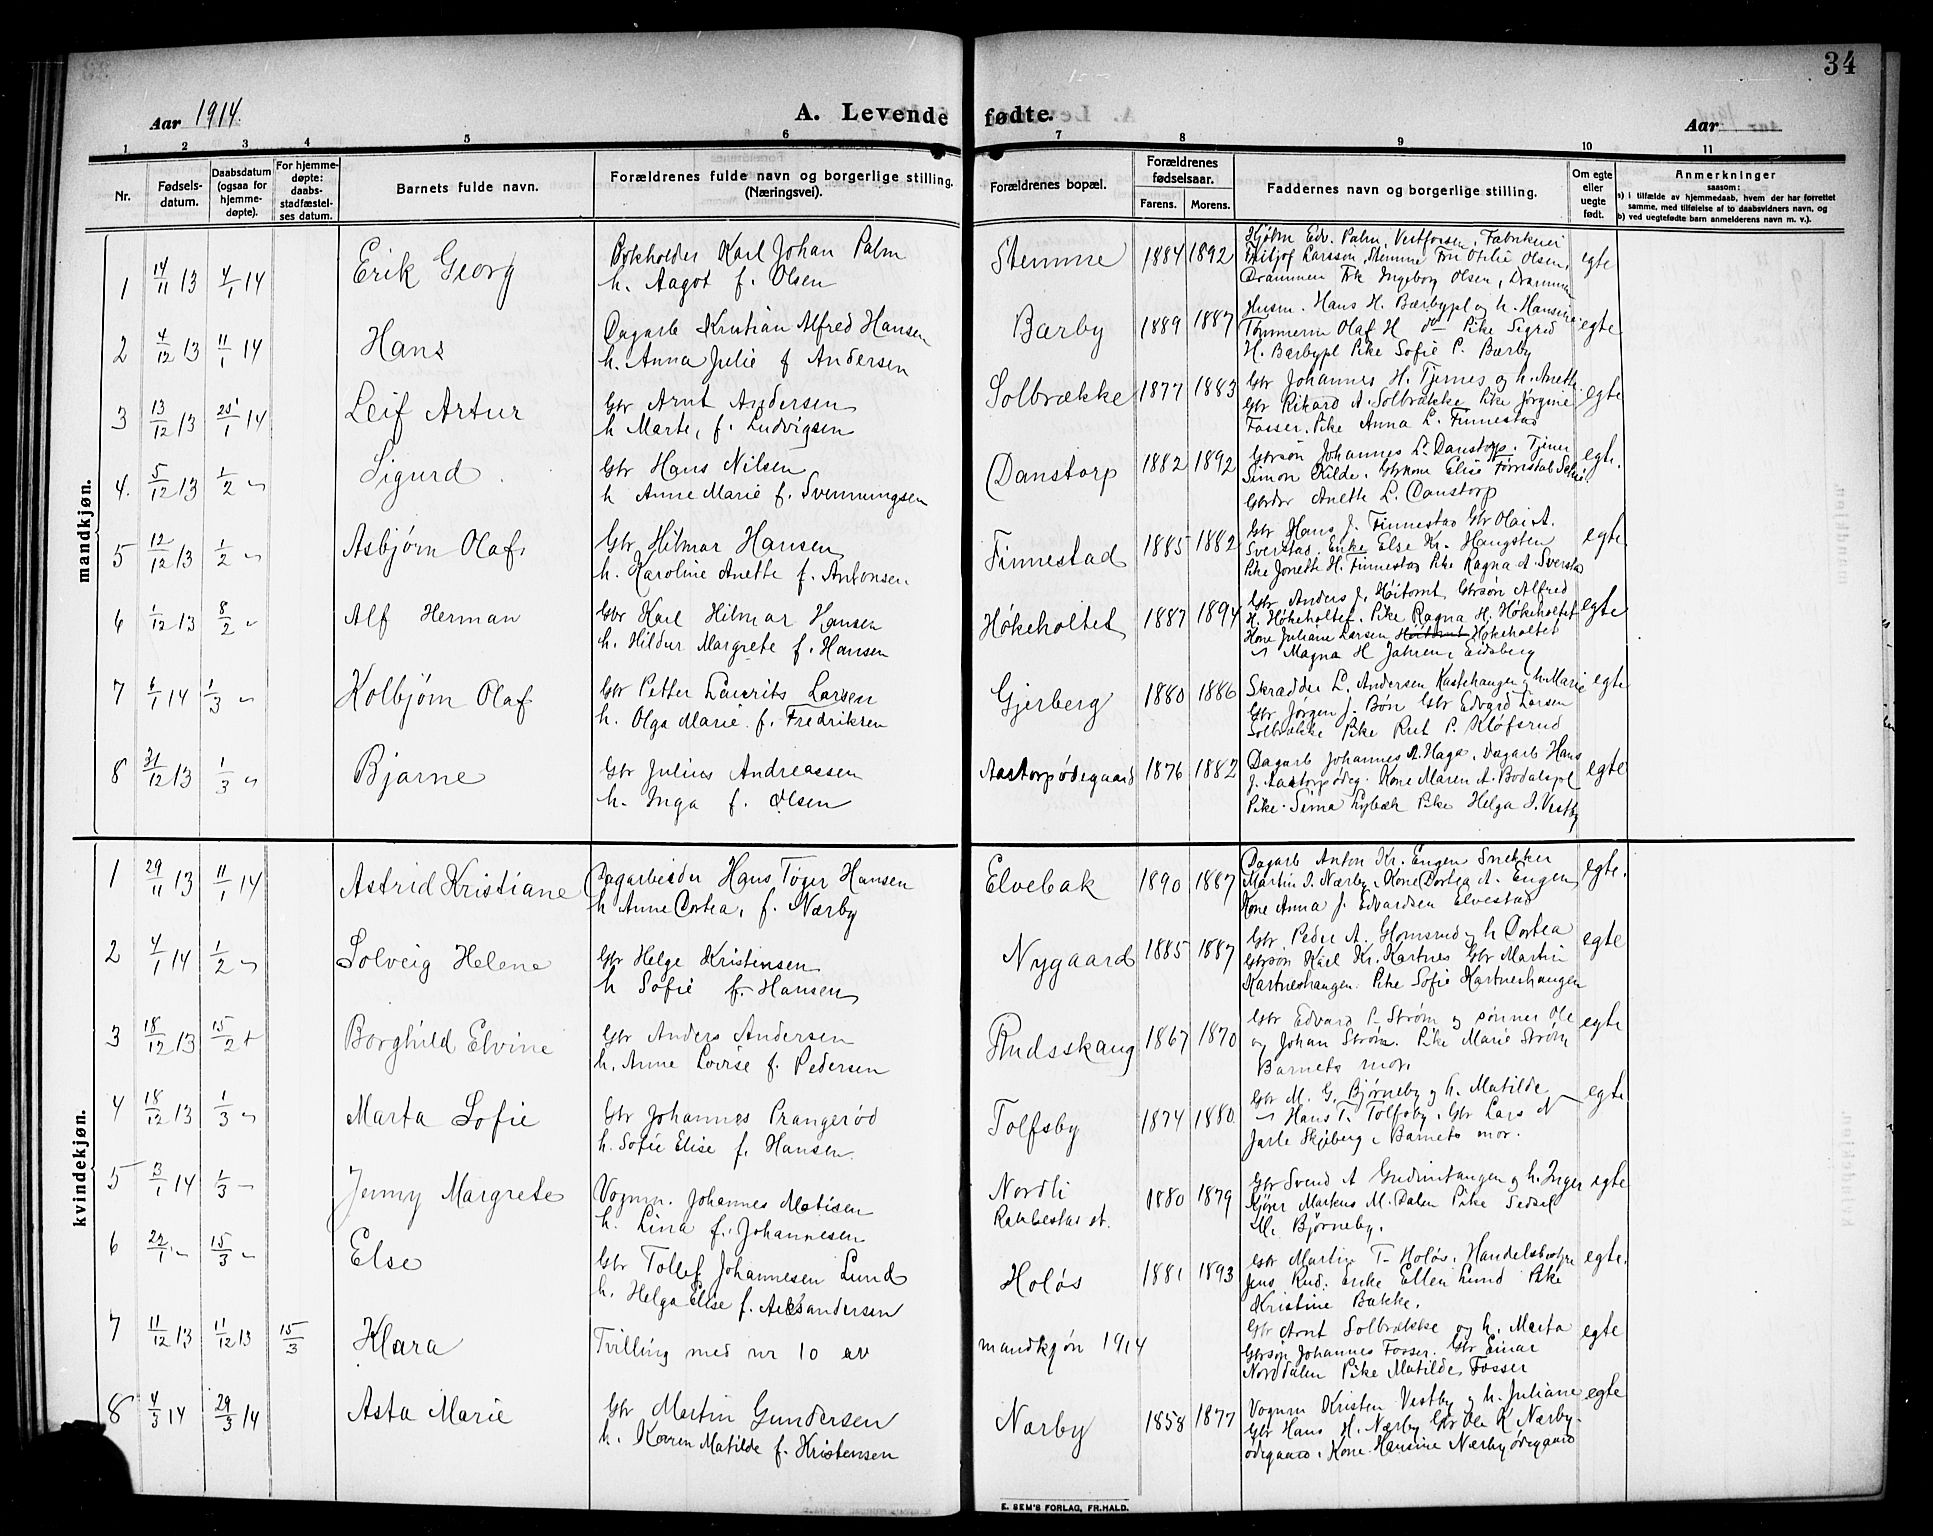 34
Aar 1914.
A. Levende fødte.
Aar
1 2 3 4 5 6 7 8 9 10 11
Nr.
Fødsels-
datum.
Daabsdatum
(ogsaa for
hjemme-
døpte).
For hjemme-
døpte:
daabs-
stadfæstel-
ses datum.
Barnets fulde navn.
Forældrenes fulde navn og borgerlige stilling.
(Næringsvei).
Forældrenes bopæl.
Forældrenes
fødselsaar.
Farens. Morens.
Faddernes navn og borgerlige stilling.
Om egte
eller
uegte
født.
Anmerkninger
saasom:
a) i tilfælde av hjemmedaab, hvem der har forrettet
samme, med tilføielse af to daabsvidners navn, og
b) ved uegtefødte barn anmelderens navn m. v.).
mandkjøn.
1 14/11 13 4/1 14 Erik Georg
Bokholder Karl Johan Palm
h. Aagot f. Olsen
Stemme 1884 1892
Hjalm Edv. Palm, Vestfossen, Fabrikeier
Fritjof Larsson, Stemme Fru Otilie Olsen,
Drammen Frk Ingeborg Olsen, Drammen
egte
2 4/12 13 11/1 14 Hans
Dagarb Kristian Alfred Hansen
h. Anna Julie f Andersen
Bærby 1889 1887
Husm. Hans H. Bærbypl og h. Hansine
Tømmerm Olaf H do Pike Sigrid
H. Bærbypl Pike Sofie P. Bærby
egte
3 13/12 13 25/1 14 Leif Artur
Gbr Arnt Andersen
h Marte, f. Ludvigsen
Solbrække 1877 1883
Gbr Johannes H. Tjernes og h. Anette
Gbr Rikard A. Solbrække Pike Jørgine
Fosser. Pike Anna L. Finnestad
egte
4. 5/12 13 1/2 " Sigurd
Gbr Hans Nilsen
h Anne Marie f. Svenningsen
Danstorp 1882 1892
Gbrsøn Johannes L. Danstorp. Tjener
Simon Kilde. Gbrkone Elise
Gbrdtr Anette L. Danstorp
egte.
5 12/12 13 1/2 " Asbjørn Olaf
Gbr Hilmar Hansen
h. Karoline Anette f. Antonsen
Finnestad 1885 1882
Gbr Hans J. Finnestad Gbr Olai A.
Sverstad. Enke Else Kr. Haugsten
Pike Jonette H. Finnestad Pike Ragna A. Sverstad
egte
6 1/12 13 8/2 " Alf Herman
Gbr Karl Hilmar Hansen
h. Hildur Margrete f. Hansen
Høkeholtet 1887 1894
Gbr Anders J. Høitomt Gbrsøn Alfred
H. Høkeholtet. Pike Ragna H. Høkeholtet
Kone Juliane Larsen Høitomt Høkeholtet
" Magna H Jahren, Eidsberg
egte
7 6/1 14 1/3 " Kolbjørn Olaf
Gbr Petter Laurits Larsen
h. Olga Marie f. Fredriksen
Gjerberg 1880 1886
Skrædder L. Andersen Kastehangen og h. Marie
Gbr Jørgen J. Bøn Gbr Edvard Larsen
Solbrække Pike Rut P. Kløfsrud
egte
8 31/12 13 1/3 " Bjarne
Gbr Julius Andreassen
h. Inga f. Olsen
Aastorpødegaard 1876 1882
Dagarb Johannes A. Haga. Dagarb Hans
J. Aastorpødeg. Kone Maren A. Bodalspl
Pike Sina Lybæk Pike Helga J. Vestby
egte
kvindekjøn.
1 29/11 13 11/1 14 Astrid Kristiane
Dagarbeider Hans Tøger Hansen
h Anne Dortea, f. Nærby
Elvebak 1890 1887
Dagarb Anton Kr. Engen Snekker
Martin J. Nærby. Kone Dortea A. Engen,
Kone Anna J. Edvardsen Elvestad
egte.
2 4/1 14 1/2 " Solveig Helene
Gbr Helge Kristensen
h Sofie f. Hansen
Nygaard 1885 1887
Gbr Peder A. Glomsrud og h Dortea
Gbrsøn Karl Kr. Kartnes Gbr Martin
Kartneshangen. Pike Sofie Kartneshangen
egte
3 18/12 13 15/2 " Borghild Elvine
Gbr Anders Andersen
h. Anne Lovise f. Pedersen
Rudsskaug 1867 1870
Gbr Edvard P. Strøm og sønner Ole
og Johan Strøm. Pike Marie Strøm
Barnets mor.
egte
4 18/12 13 1/3 " Marta Sofie
Gbr Johannes Prangerød
h. Sofie Elise f. Hansen.
Tolfsby 1874 1880
Gbr M. G. Bjørneby og h. Matilde
" Hans T. Tolfsby. Gbr Lars N
Jarle Skjøberg. Barnets mor.
egte
5 3/1 14 1/3 " Jenny Margrete
Vognm. Johannes Matisen
h. Lina f. Johannesen
Nordli
Rakkestad st.
1880 1879
Gbr Svend A Gudimtangen og h. Inger
Kjører Markus M. Dalen Pike Sedsel
M. Bjørneby.
egte
6 22/1 " 15/3 " Else
Gbr Tollef Johannesen Lund
h. Helga Elise f. Aleksandersen
Holøs 1881 1893
Gbr Martin T. Holøs. Handelsbestyr
Jens Rud. Enke Ellen Lund Pike
Kristine Bakke.
egte.
7 11/12 13 11/12 13 15/3 Klara
Tvilling med nr 10 av mandkjøn 1914
Gbr Arnt Solbrække og h. Marta
Gbrsøn Johannes Fosser. Gbr Einar
Norddalen Pike Matilde Fosser
egte
8 4/3 14 29/3 14 Asta Marie
Gbr Martin Gundersen
h. Karen Matilde f. Kristensen
Nærby 1858 1877
Vognm Kristen Vestby og h. Juliane
Gbr Hans H. Nærby Gbr Ole K Nærby-
ødegaard. Kone Hansine Nærbyødegaard
egte
E. SEM'S FORLAG, FR.HALD.